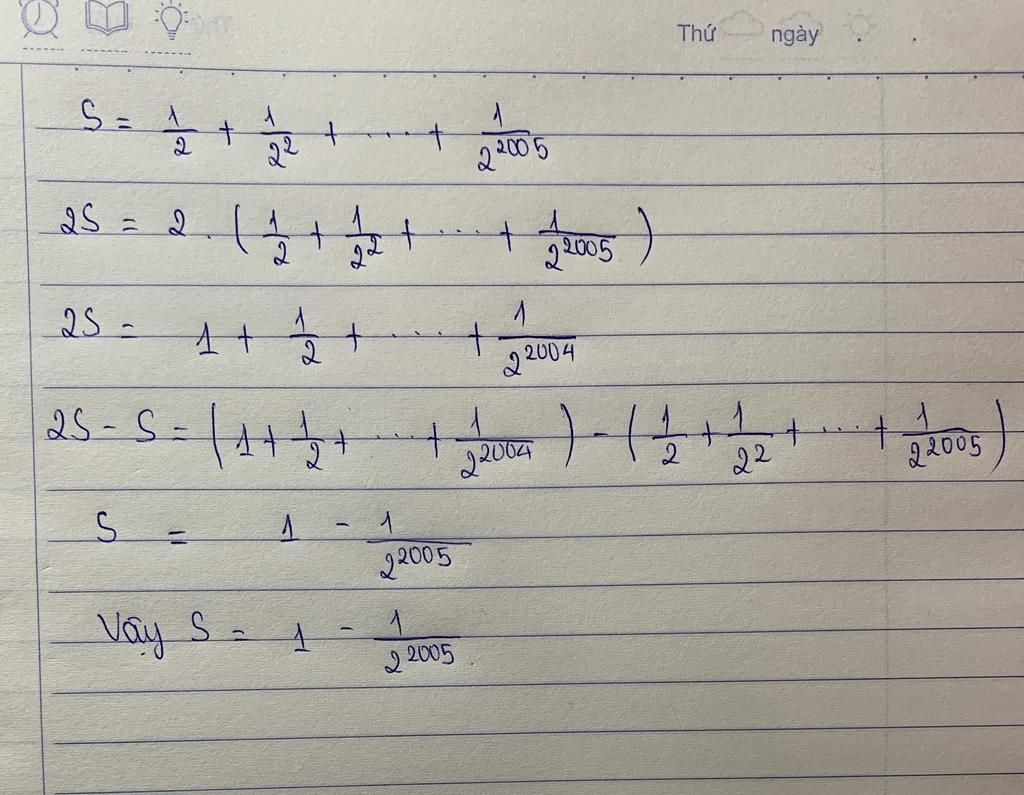 Thứ ngày
S = 1/2 + 1/2² + ... + 1/2²⁰⁰⁵
2S = 2 . (1/2 + 1/2² + ... + 1/2²⁰⁰⁵)
2S = 1 + 1/2 + ... + 1/2²⁰⁰⁴
2S - S = (1 + 1/2 + ... + 1/2²⁰⁰⁴) - (1/2 + 1/2² + ... + 1/2²⁰⁰⁵)
S = 1 - 1/2²⁰⁰⁵
Vậy S = 1 - 1/2²⁰⁰⁵.